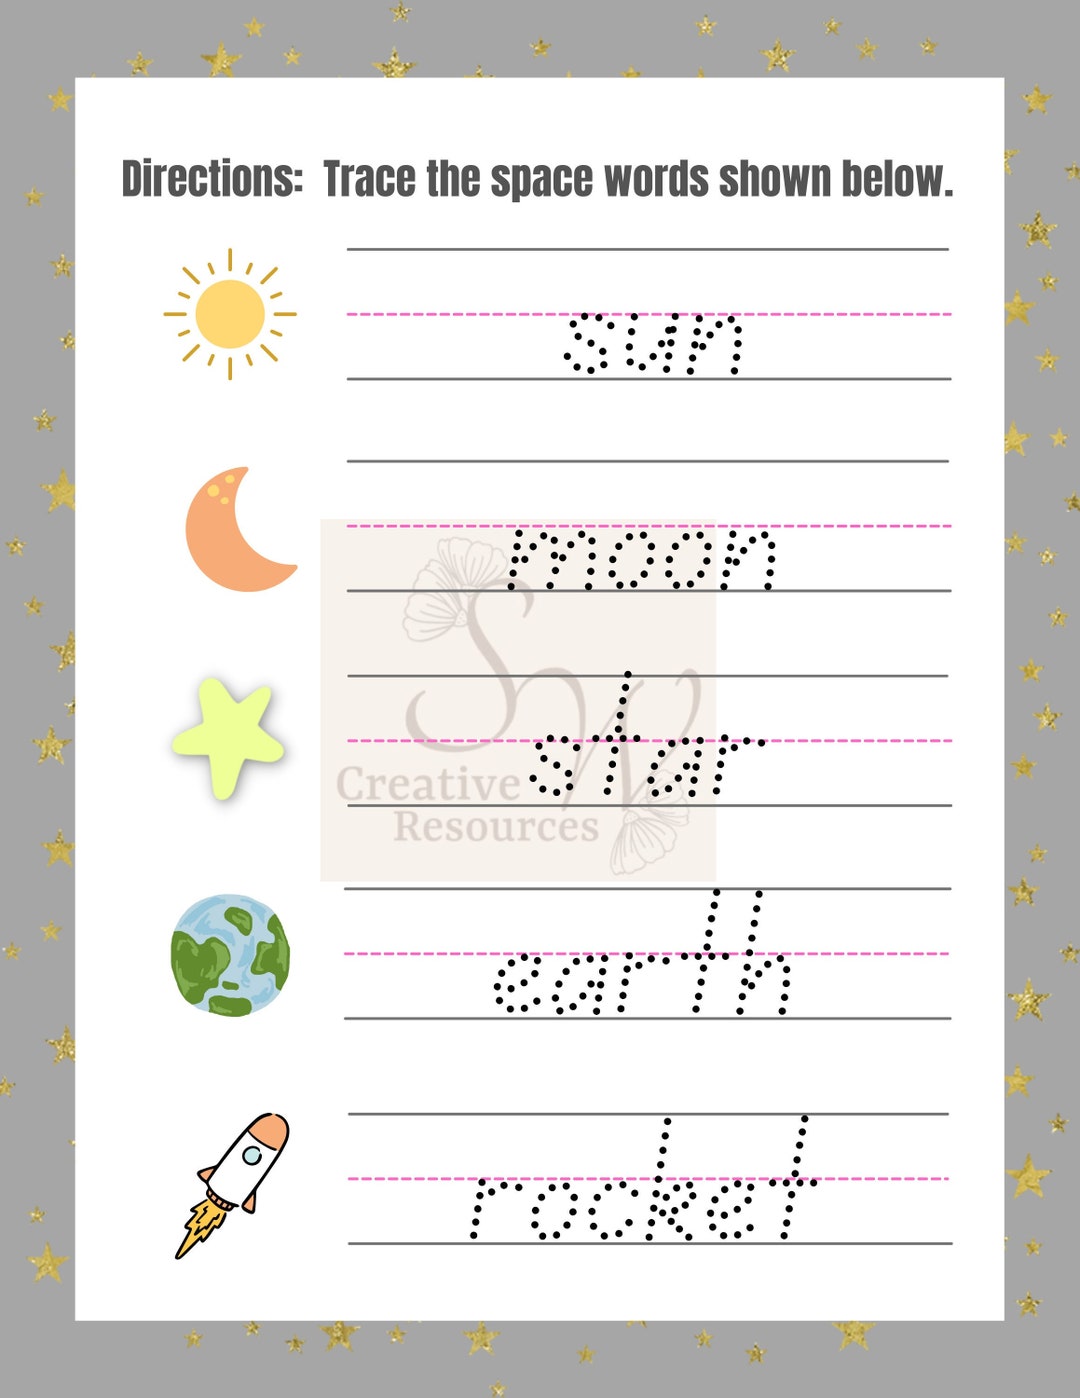 Directions: Trace the space words shown below.
sun
moon
SW
star
Creative
Resources
earth
rocket